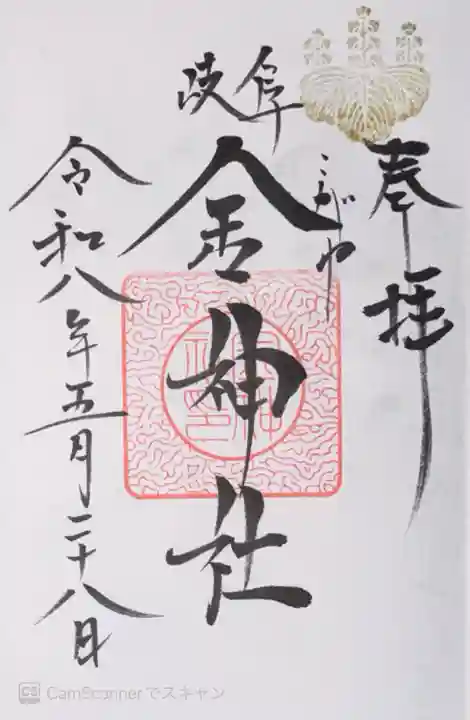 奉拝
岐阜
こがね
金神社
令和八年五月二十八日
CS CamScannerでスキャン